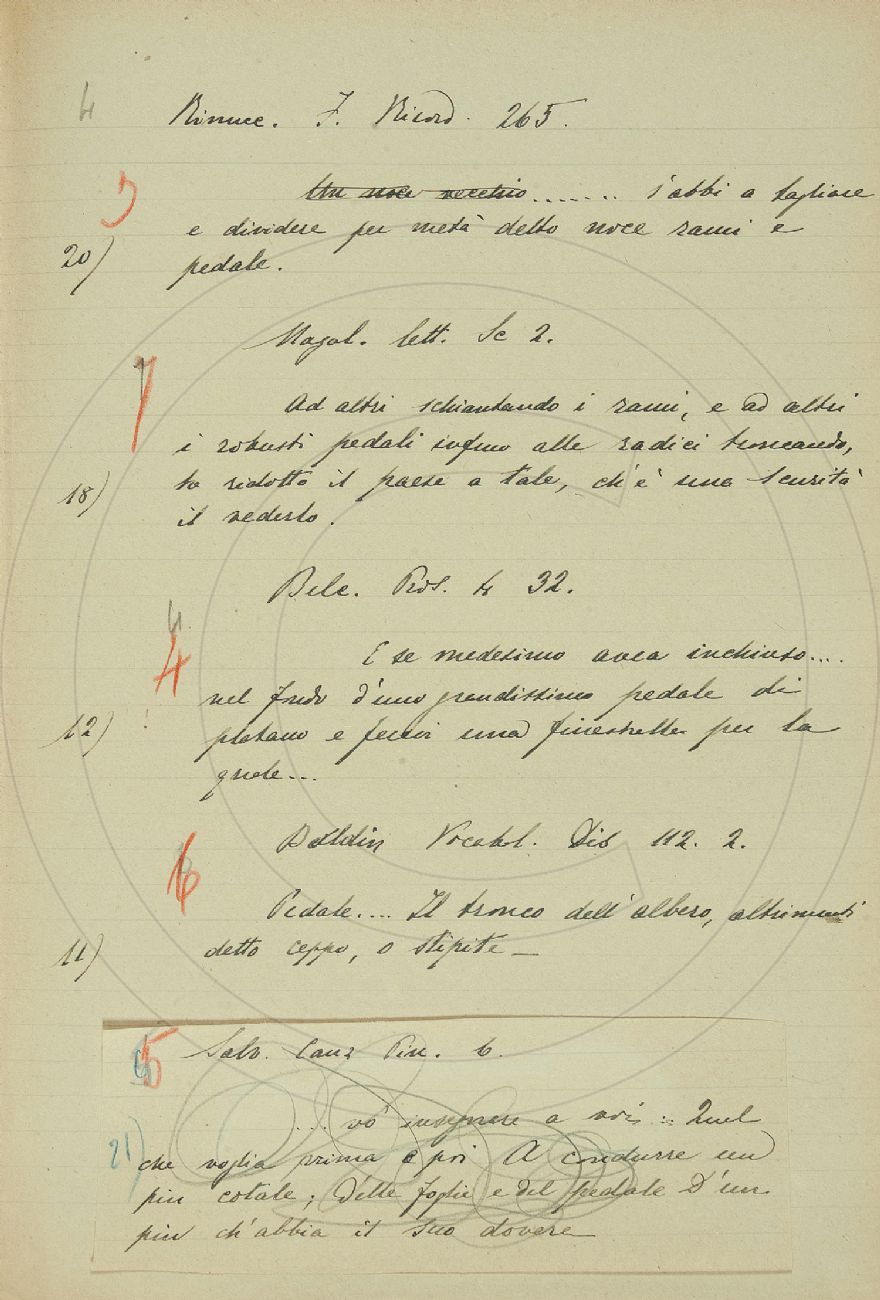 4
Rinucc. F. Ricord. 265.
3
Un noce vecchio ........ s'abbi a tagliare
e dividere per metà detto noce rami e
20)
pedale.
Magal. lett. Sc 2.
7
Ad altri schiantando i rami, e ad altri
i robusti pedali infino alle radici troncando,
18)
ha ridotto il paese a tale, ch'è una scurità
il vederlo.
Belc. Pros. 4 32.
4
4
E se medesimo avea inchiuso....
nel fondo d'uno grandissimo pedale di
12)
platano e fecevi una finestrella per la
quale...
Baldin Vocabol. Dis 112. 2.
6
Pedale.... Il tronco dell'albero, altrimenti
11)
detto ceppo, o stipite —
6 5
Salv. Canz Pin. 6.
... vo' insegnare a voi: Quel
21)
che voglia prima e poi A condurre un
pin cotale; Delle foglie e del pedale D'un
pin ch'abbia il suo dovere